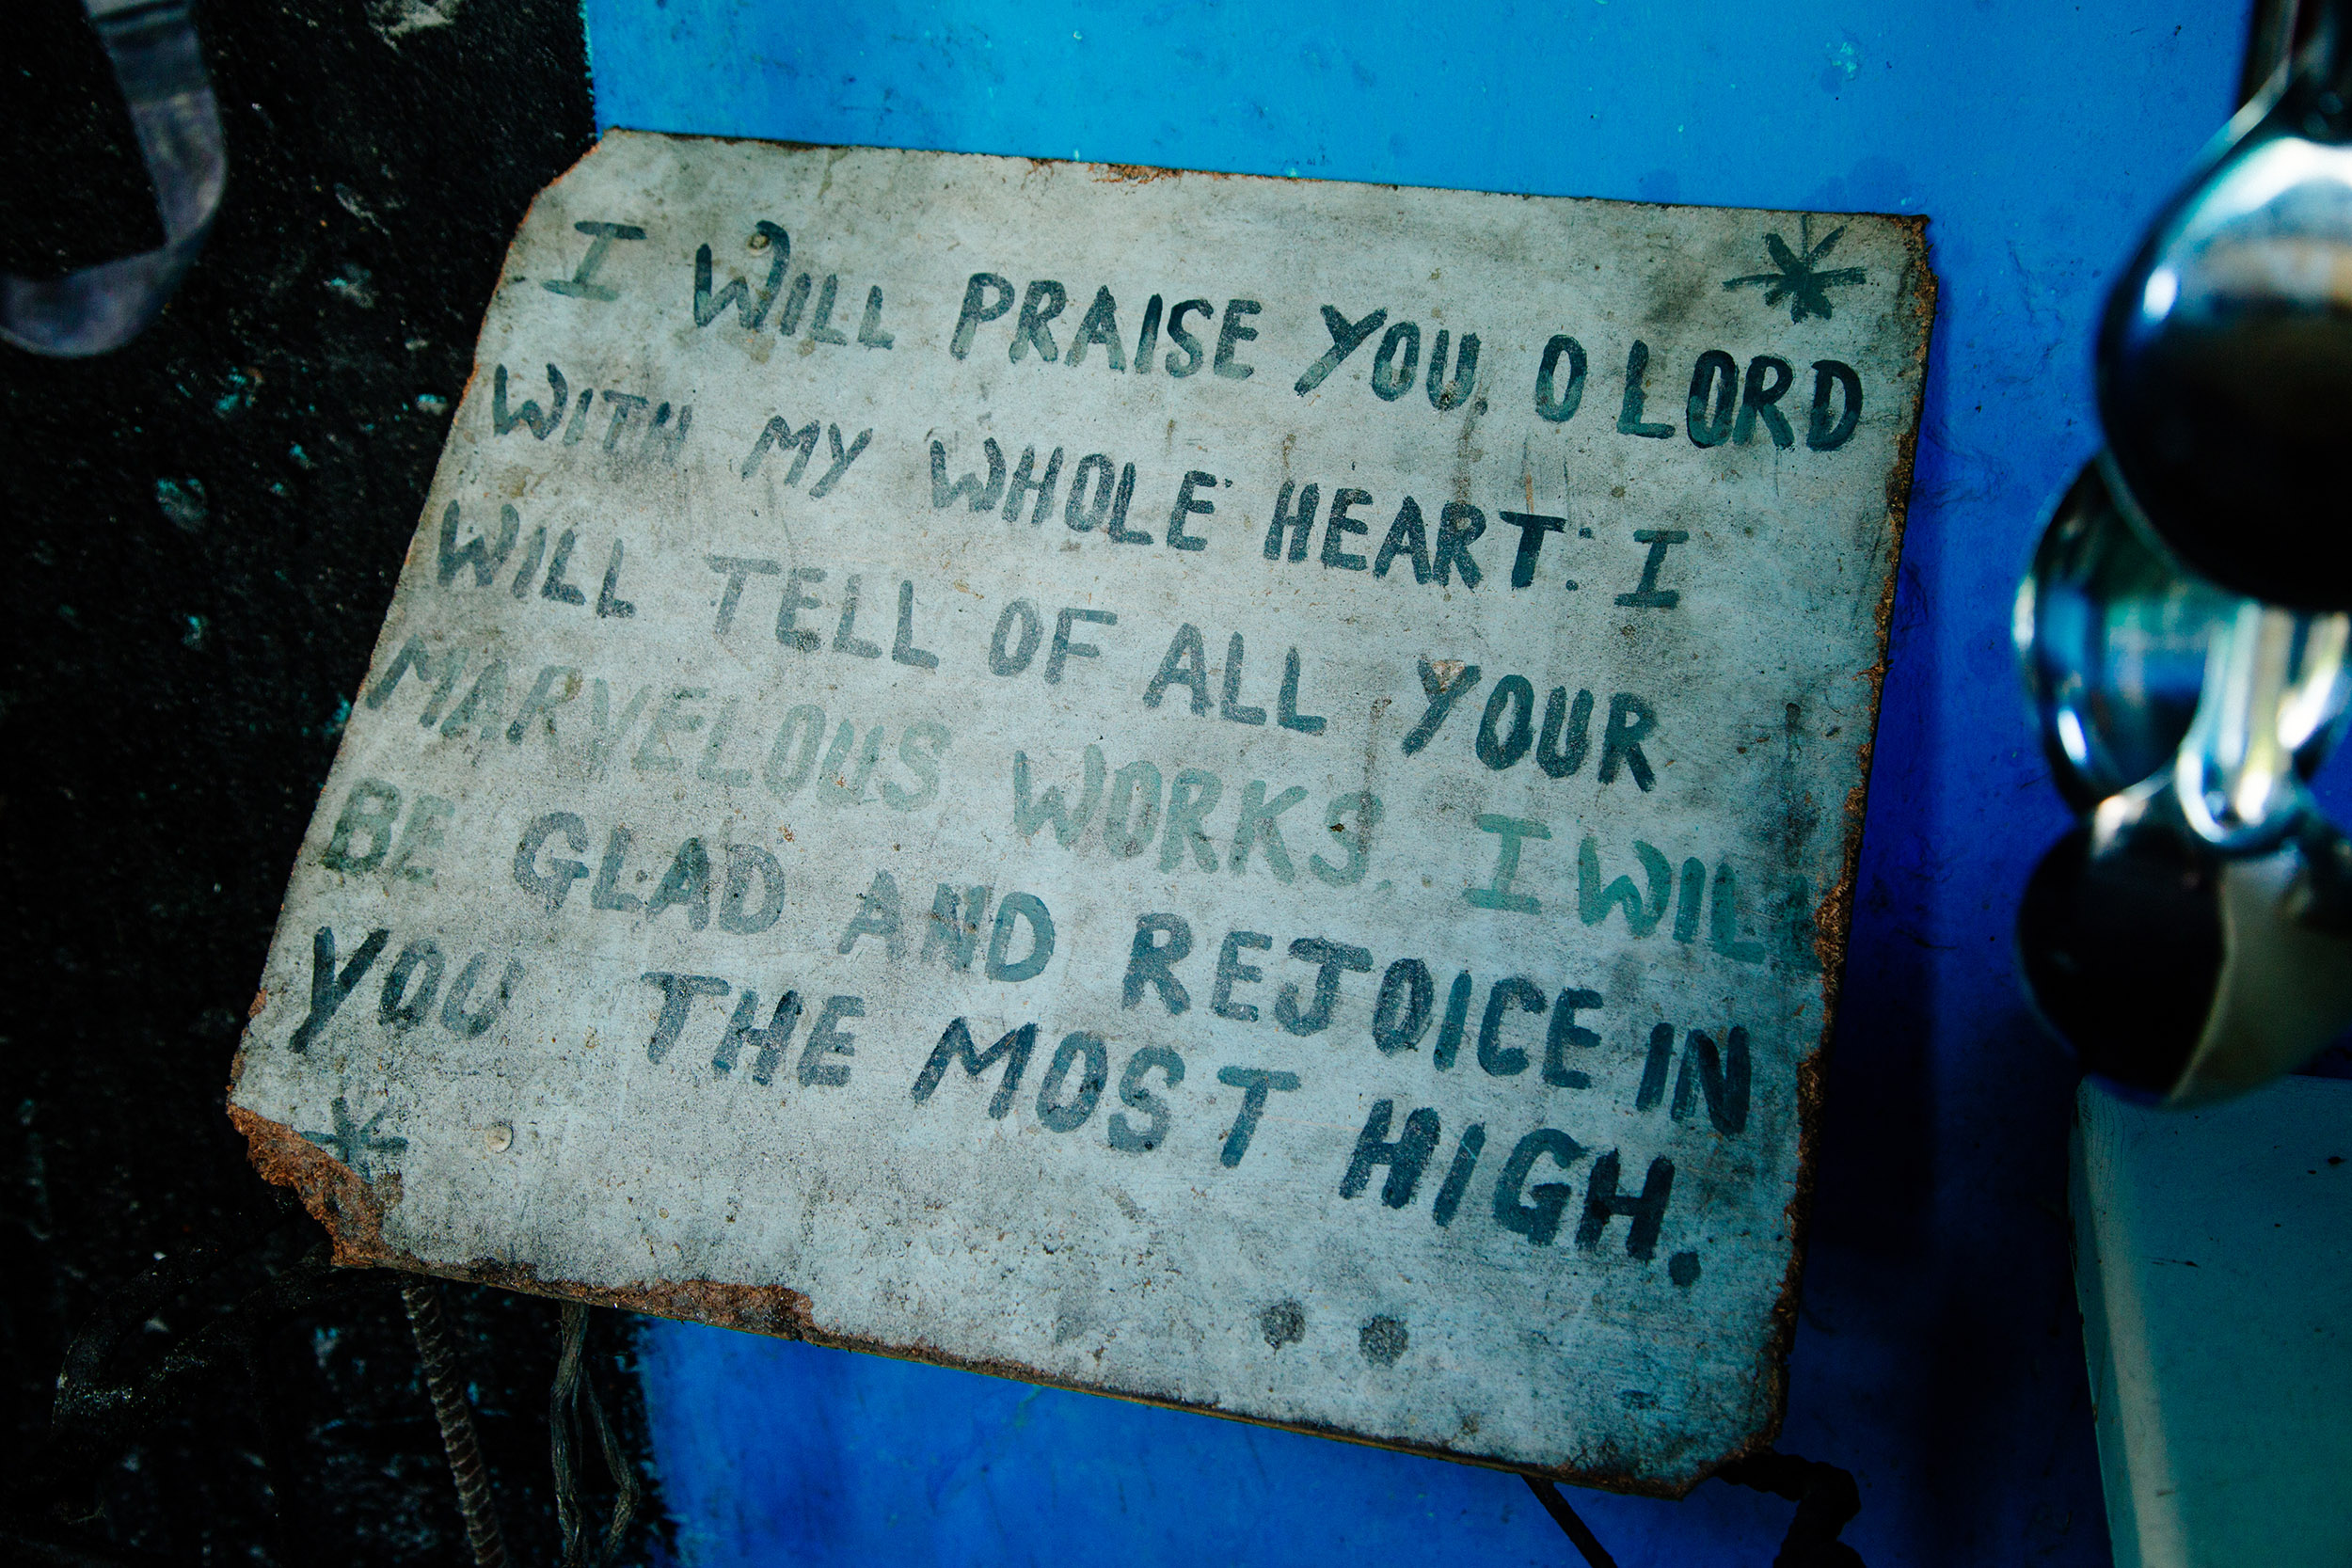 I WILL PRAISE YOU, O LORD
WITH MY WHOLE HEART: I
WILL TELL OF ALL YOUR
MARVELOUS WORKS, I WILL
BE GLAD AND REJOICE IN
YOU THE MOST HIGH.